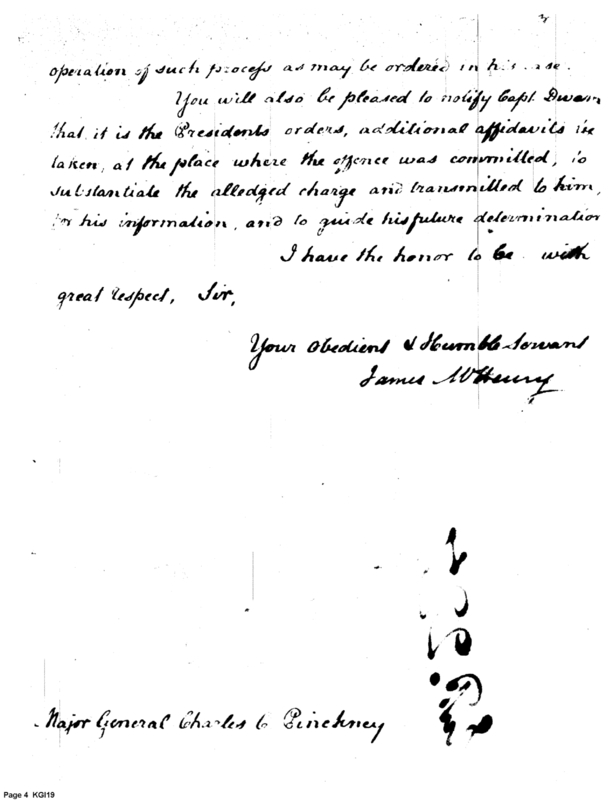 operation of such process as may be ordered in his case.
You will also be pleased to notify Capt.
that it is the Presidents orders, additional affidavits be
taken, at the place where the offence was committed, to
substantiate the alledged charge and transmitted to him,
for his information, and to guide his future determination
I have the honor to be with
great respect, Sir,
Your obedient & Humble Servant
James McHenry
Major General Charles C Pinckney
Page 4 KGI19